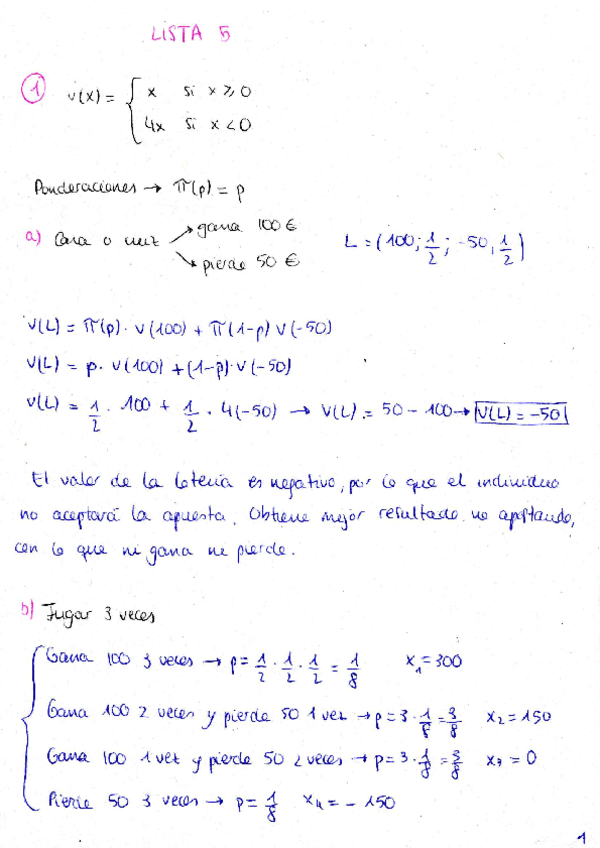 LISTA 5
1 v(x) = { x si x ≥ 0
4x si x < 0
Ponderaciones → π(p) = p
a) Cara o cruz → gana 100 €
→ pierde 50 €
L = (100; 1/2; -50, 1/2)
V(L) = π(p) · v(100) + π(1-p) v(-50)
V(L) = p · v(100) + (1-p) · v(-50)
V(L) = 1/2 · 100 + 1/2 · 4(-50) → V(L) = 50 - 100 → V(L) = -50
El valor de la lotería es negativo, por lo que el individuo
no aceptará la apuesta. Obtiene mejor resultado no apostando,
con lo que ni gana ni pierde.
b) Jugar 3 veces
Gana 100 3 veces → p = 1/2 · 1/2 · 1/2 = 1/8 x1 = 300
Gana 100 2 veces y pierde 50 1 vez → p = 3 · 1/8 = 3/8 x2 = 150
Gana 100 1 vez y pierde 50 2 veces → p = 3 · 1/8 = 3/8 x3 = 0
Pierde 50 3 veces → p = 1/8 x4 = -150
1